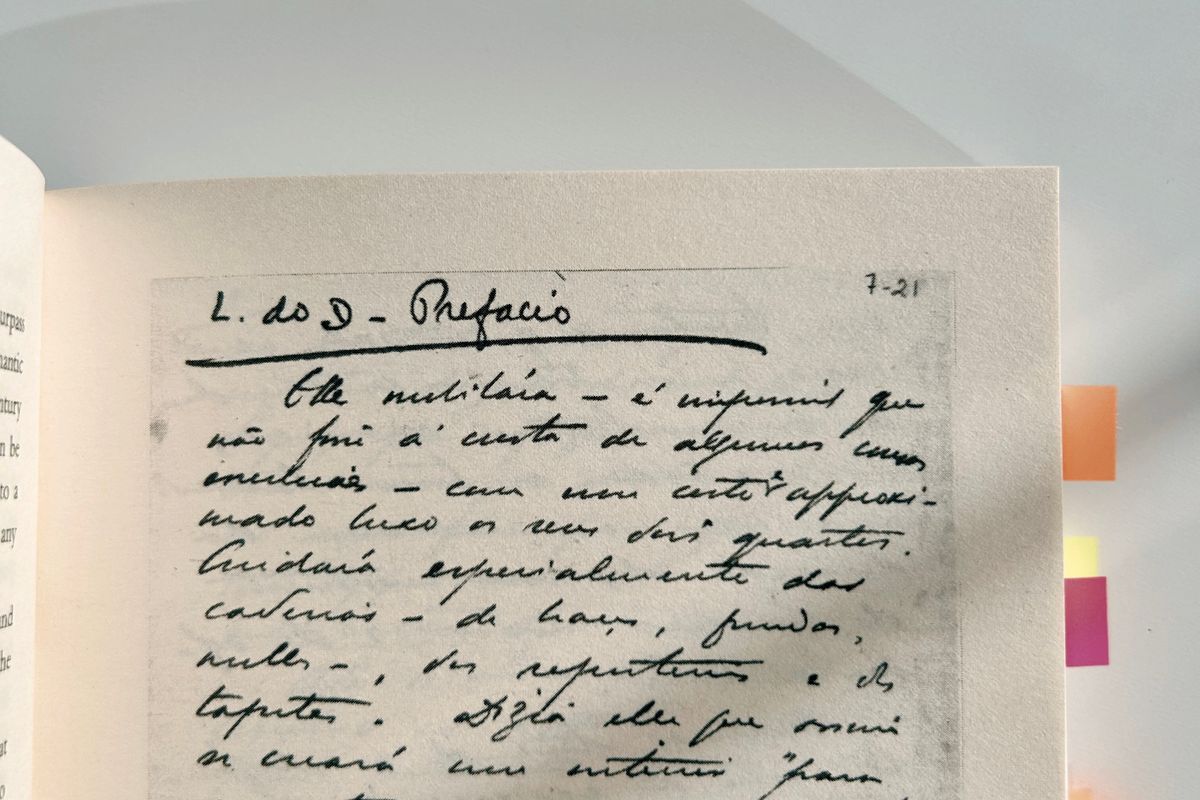 urpass
nantic
ntury
n be
to a
any
nd
he
L. do D - Prefacio
7-21
Elle mobilára – é impossivel que
não fosse á custa de algumas cousas
essenciaes – com um certo e approxi-
mado luxo os seus dois quartos.
Cuidára especialmente das
cadeiras – de braços, fundas,
molles –, dos reposteiros e dos
tapetes. Dizia elle que assim
se creára um interior "para